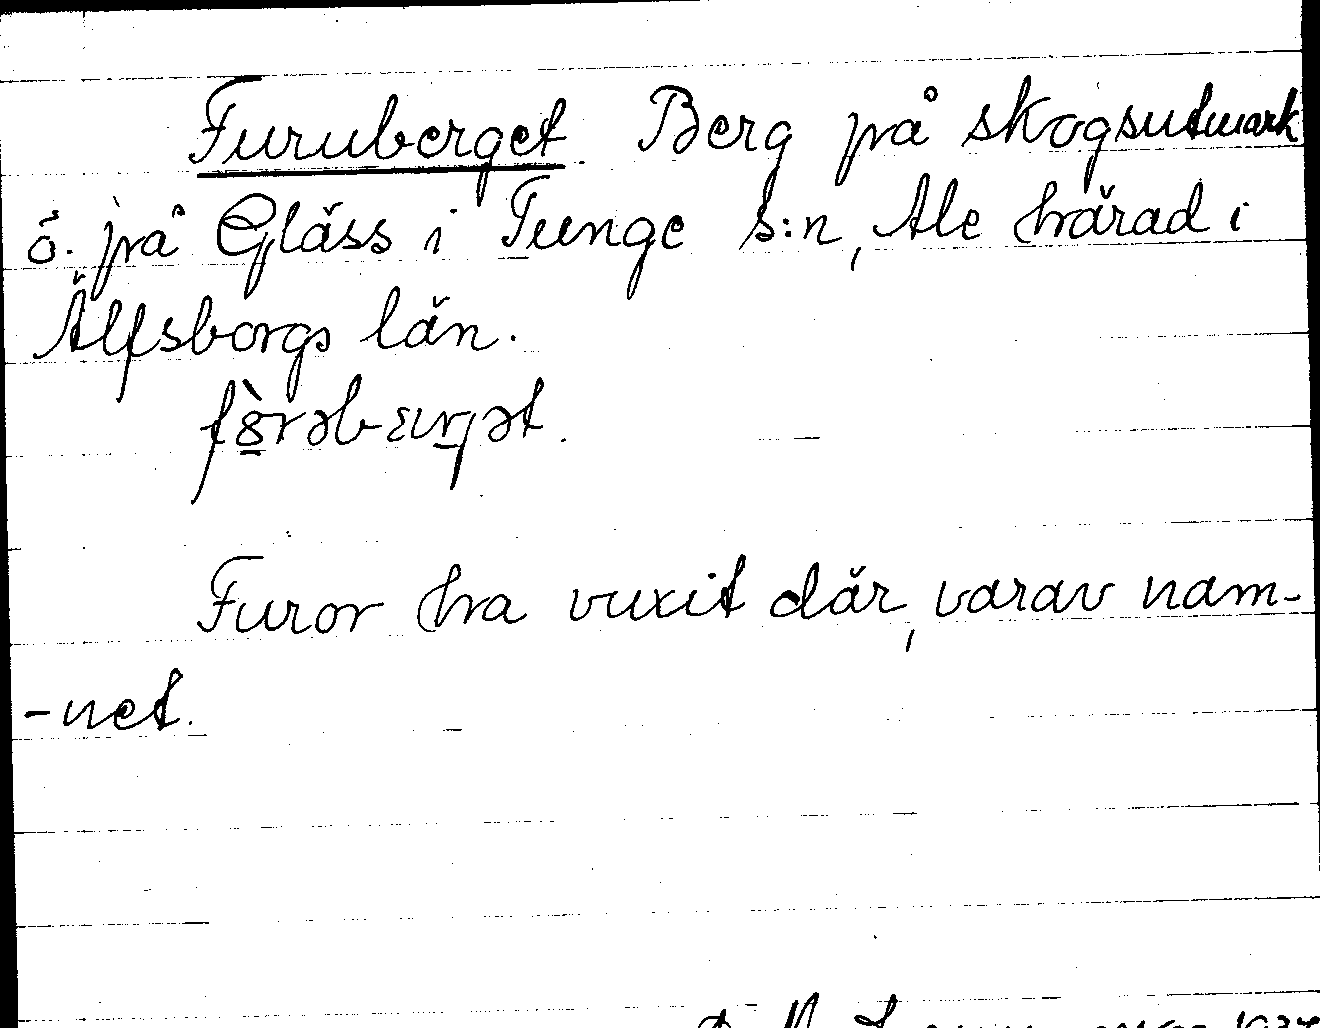 Furuberget. Berg på skogsutmark
ö. på Gläss i Tunge s:n, Ale härad i
Älfsborgs län.
fòrəbærjət.
Furor ha vuxit där, varav nam-
-net.